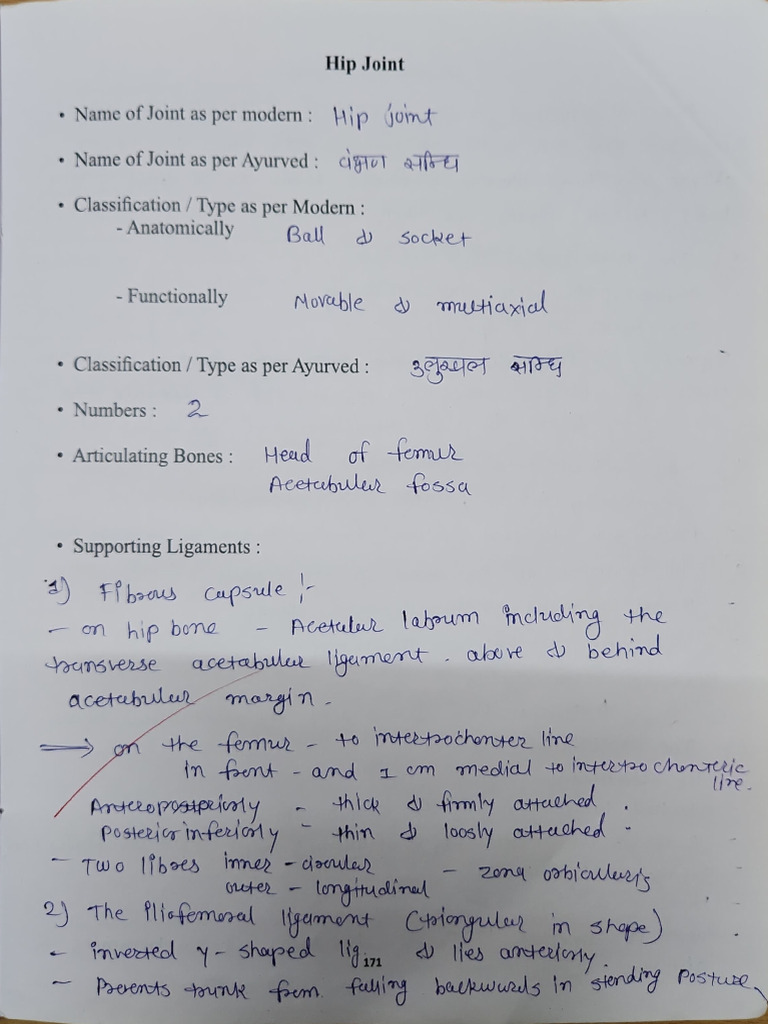 Hip Joint
• Name of Joint as per modern : Hip joint
• Name of Joint as per Ayurved : वंक्षण सन्धि
• Classification / Type as per Modern :
- Anatomically Ball & socket
- Functionally Movable & multiaxial
• Classification / Type as per Ayurved : उलुखल सन्धि
• Numbers : 2
• Articulating Bones : Head of femur
Acetabular fossa
• Supporting Ligaments :
1) Fibrous capsule :-
- on hip bone - Acetular labrum including the
transverse acetabular ligament. above & behind
acetabular margin.
⟹ on the femur - to intertrochenter line
in front - and 1 cm medial to intertrochenteric
line.
- thick & firmly attached.
Posterior inferiorly - thin & loosly attached.
- Two fibres inner - circular - zona orbicularis
outer - longitudinal
2) The Iliofemoral ligament (triangular in shape)
- inverted y-shaped lig. & lies anteriorly.
171
- Prevents trunk from falling backwards in stending posture,